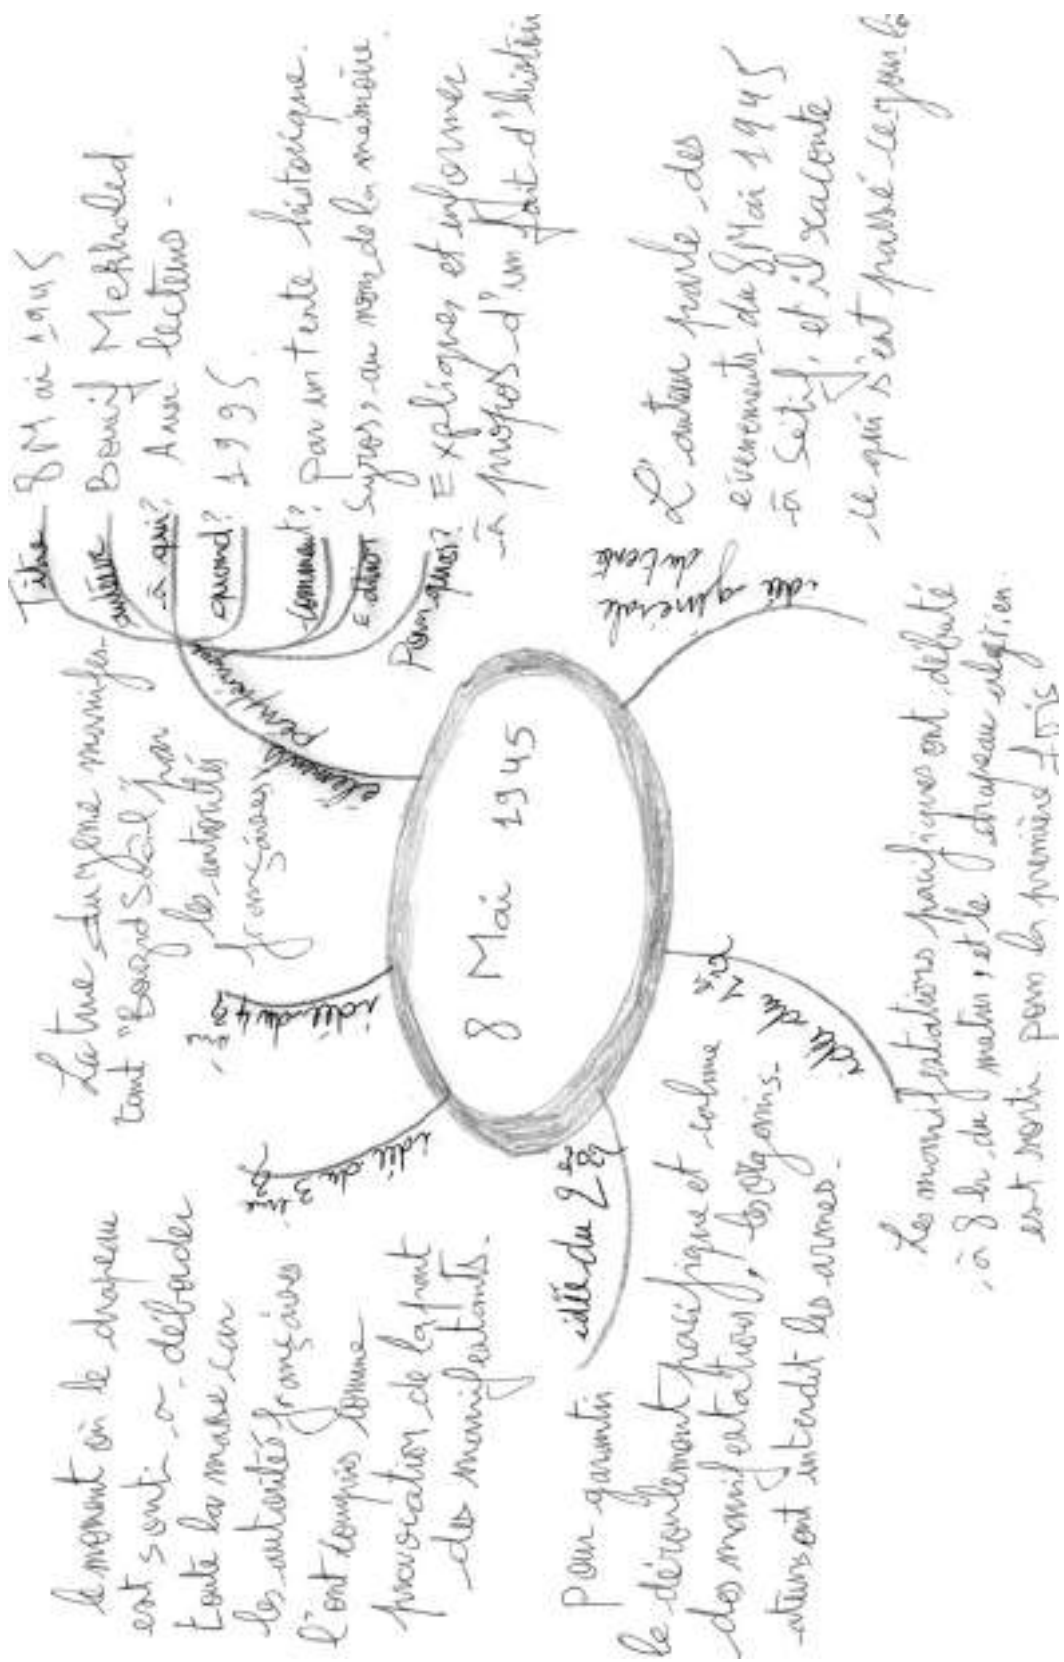 8 Mai 1945
éléments
périphériques
Titre
8 Mai 1945
auteur
Bouif Mekhaled.
à qui?
Aux lecteurs -
quand?
1995
comment?
par un texte historique.
Syros, au nom de la mémoire.
Pourquoi?
Expliques et informer
à propos d'un fait d'histoire
idée générale
du texte
L'auteur parle des
évènements du 8 Mai 1945
à Setif, et il raconte
ce qui s'est passé ce jour là
idée du 1
Les manifestations pacifiques ont débuté
à 8h du matin, et le drapeau algérien
est sorti pour la première fois
idée du 2
Pour garantir
le déroulement pacifique et calme
des manifestations, les organis-
ateurs ont interdit les armes.
idée du 3
le moment où le drapeau
est sorti a débordé
toute la masse car
les autorités françaises
l'ont compris comme
provocation de la part
des manifestants.
idée du 4
La tue du jeune manifes-
tant "Bouzid Saâl" par
les autorités
françaises